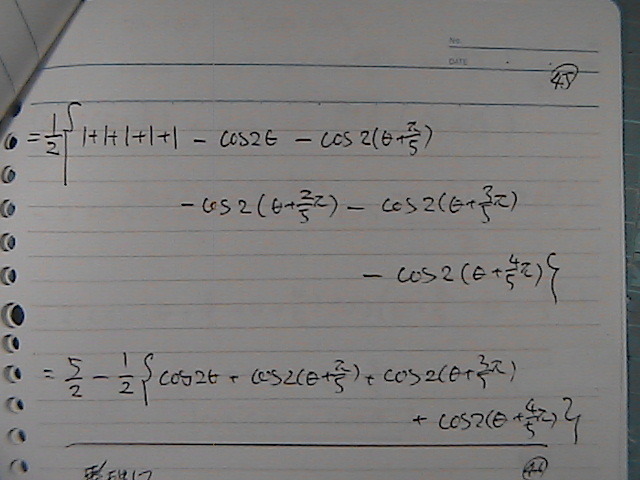 No.
DATE
45
= 1/2 { 1+1+1+1+1 - cos2θ - cos2(θ+π/5)
- cos2(θ+2/5π) - cos2(θ+3/5π)
- cos2(θ+4/5π) }
= 5/2 - 1/2 { cos2θ + cos2(θ+π/5) + cos2(θ+3π/5)
+ cos2(θ+4π/5) }